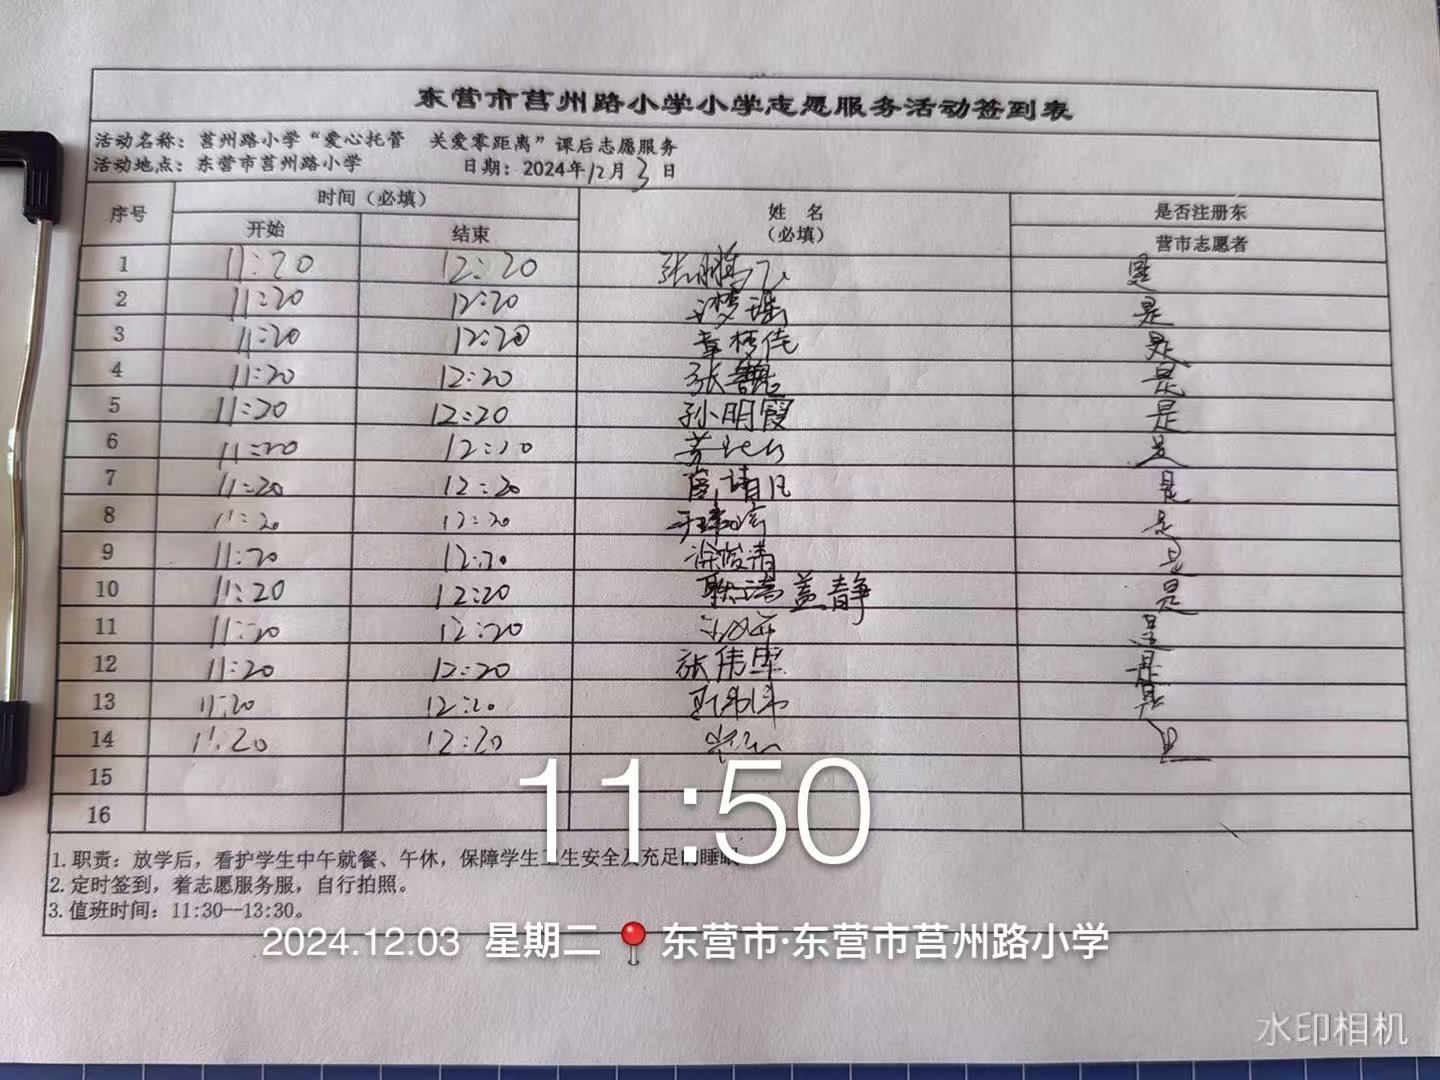 东营市莒州路小学小学志愿服务活动签到表
活动名称：莒州路小学“爱心托管 关爱零距离”课后志愿服务
活动地点：东营市莒州路小学 日期：2024年12月3日
序号 时间（必填） 姓 名 是否注册东
开始 结束 （必填） 营市志愿者
1 11:20 12:20 是
2 11:20 12:20 梦瑶 是
3 11:20 12:20 章梦佳 是
4 11:20 12:20 张 是
5 11:20 12:20 孙明霞 是
6 11:20 12:20 是
7 11:20 12:20 是
8 11:20 12:20 是
9 11:20 12:20 徐俊清 是
10 11:20 12:20 盖静 是
11 11:20 12:20 是
12 11:20 12:20 张伟 是
13 11:20 12:20 是
14 11:20 12:20
15
16
11:50
1.职责：放学后，看护学生中午就餐、午休，保障学生卫生安全及充足的睡眠
2.定时签到，着志愿服务服，自行拍照。
3.值班时间：11:30--13:30。
2024.12.03 星期二 东营市·东营市莒州路小学
水印相机